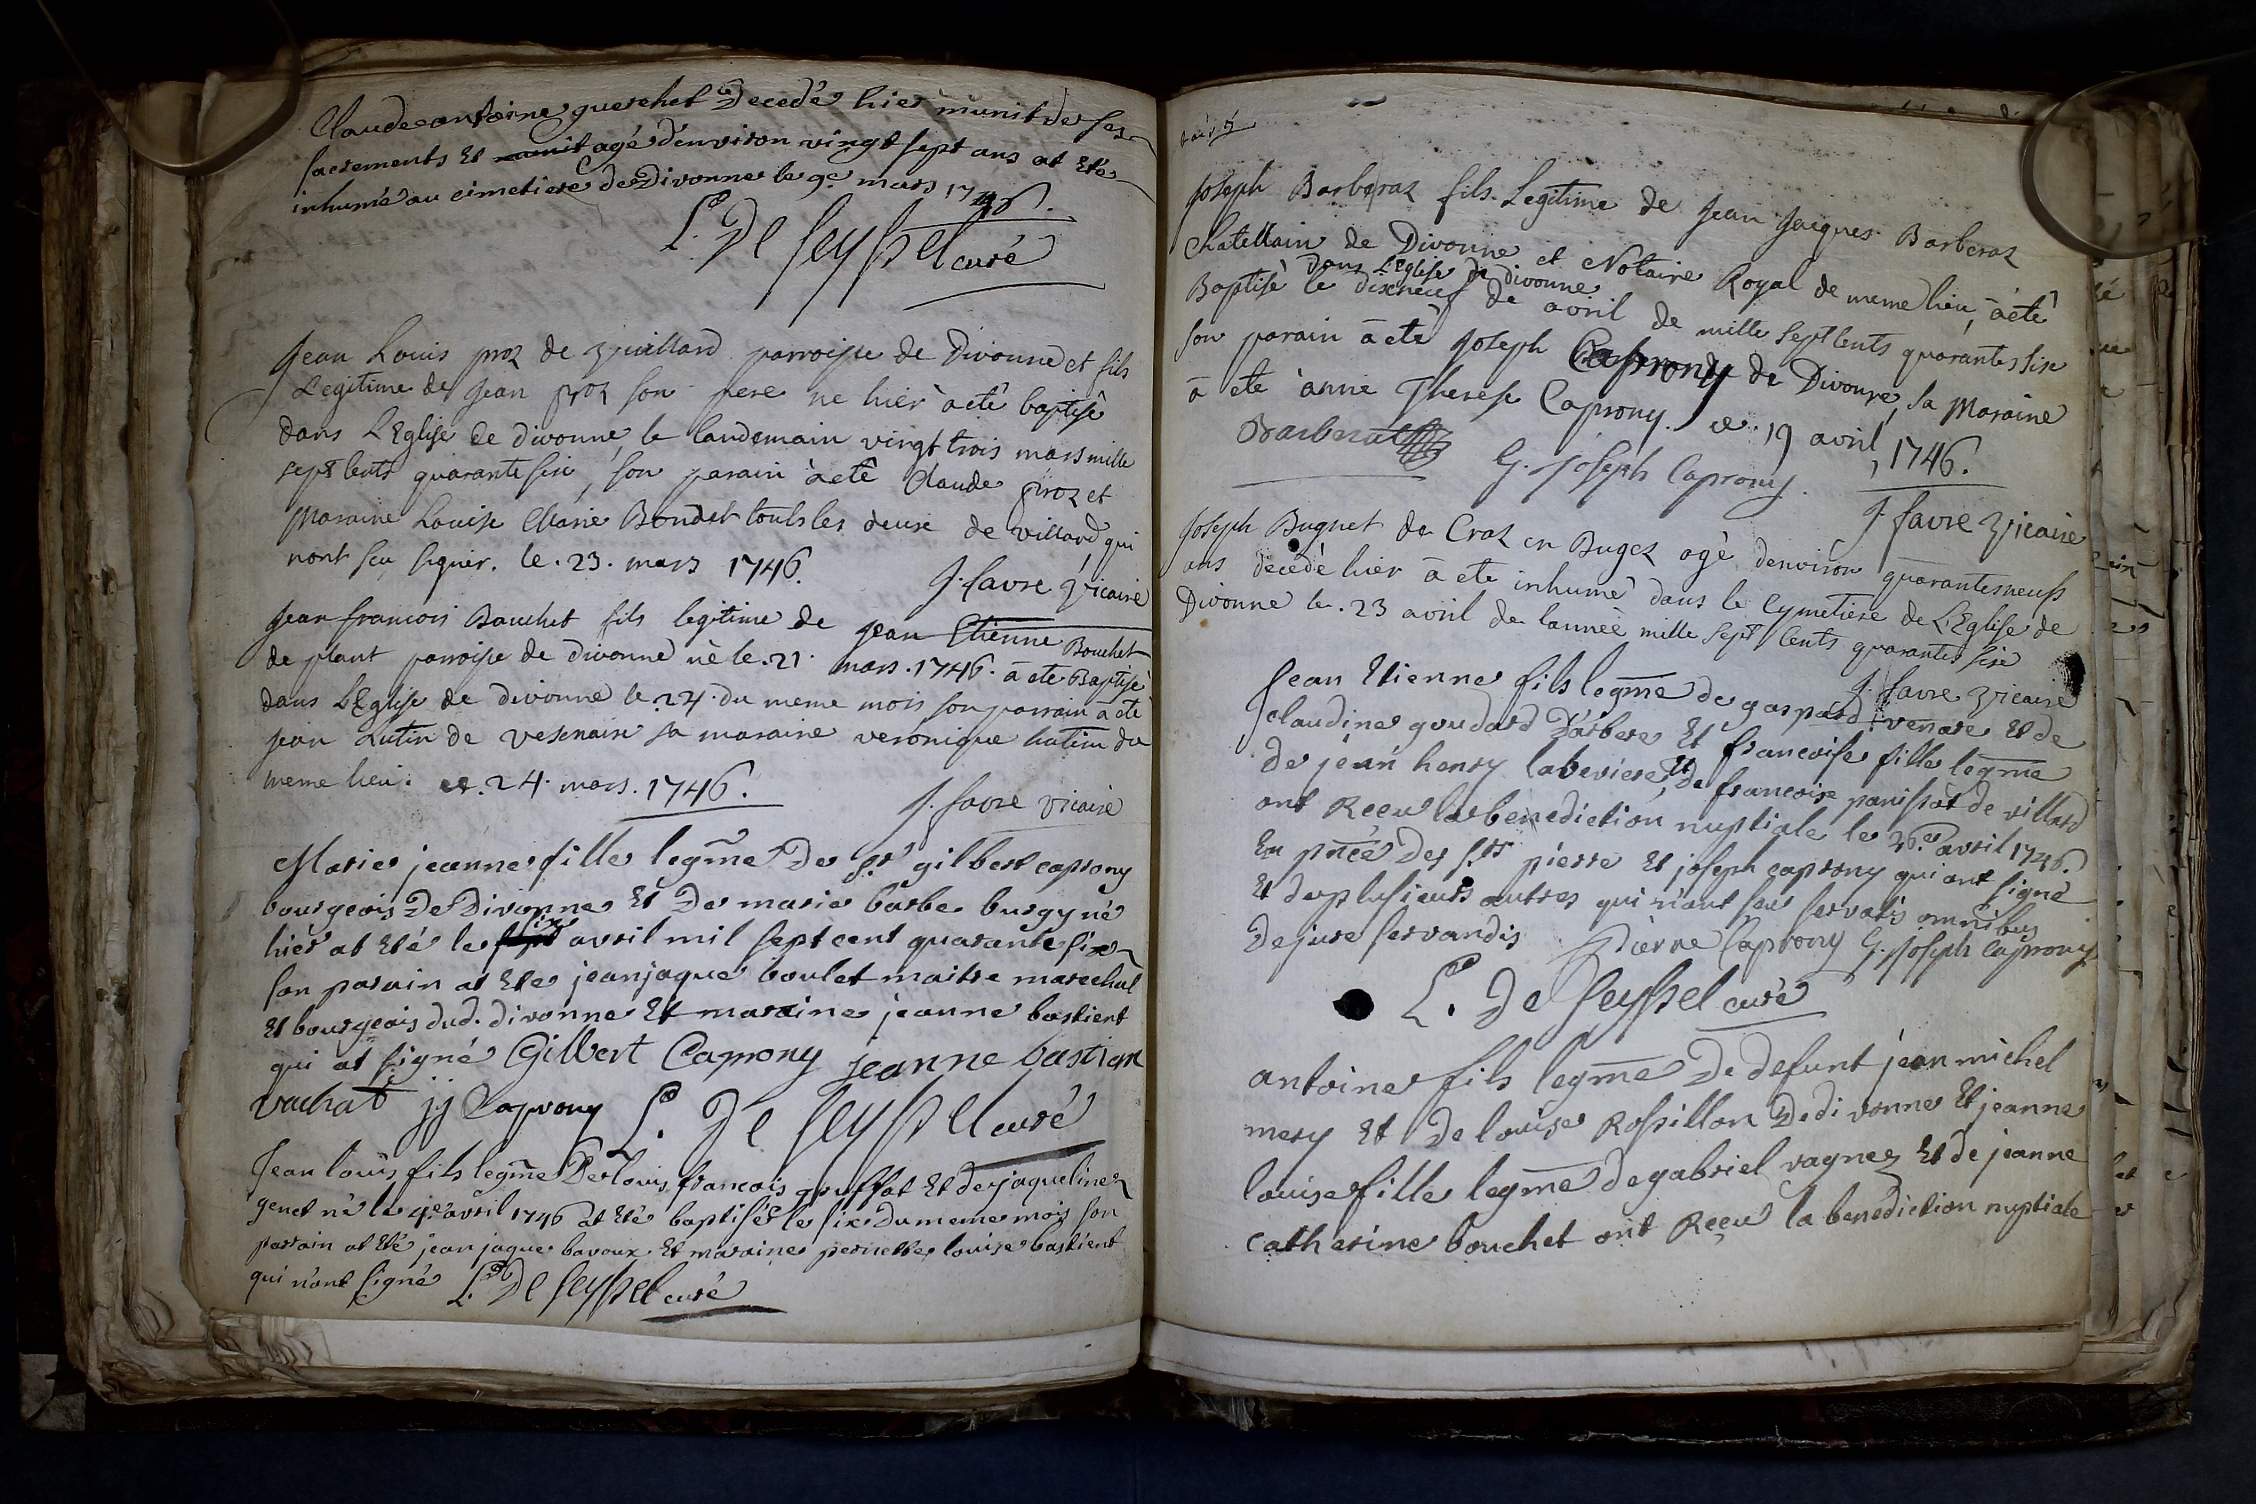 Claude antoine guerchet decedé hier munit de ses
sacrements Et agé denviron vingt sept ans at Eté
inhumé au cimetiere de Divonne le 9e mars 1746.
L. De Seyssel curé
Jean Louis proz de villard parroisse de Divonne et fils
Legitime de Jean proz son pere ne hier à eté baptisé
dans L'Eglise de divonne, le landemain vingt trois mars mille
sept cents quarante six, son parain à eté Claude proz et
Maraine Louise Marie Bondet touts les deux de villard qui
nont scu signer. le .23. mars 1746.
J. favre vicaire
Jean francois Bauchet fils legitime de Jean Etienne Bouchet
de plant parroisse de divonne nè le .21. mars .1746. à ete Baptisé
dans L'Eglise de divonne le .24. du meme mois son parrain à eté
Jean Lutin de vesenaire sa maraine veronique Lutin du
meme lieu. ce .24. mars .1746.
J. favre vicaire
Marie jeanne fille legme De Sr gilbert caprony
bourgeois De Divonne Et De marie barbe burgy né
hier at Eté le six avril mil sept cent quarante six
son parain at Eté jean jaque boulet maitre marechal
Et bourgeois dud. divonne Et maraine jeanne bastient
qui at signé Gilbert Caprony jeanne bastian
vachat jj Caprony L. De Seyssel curé
Jean louis fils legme De louis francois gruffat Et de jaqueline
genet né le 4e avril 1746 at Eté baptisé le six du meme mois son
parrain at Eté jean jaque bavoux Et maraine pernette louise bastient
qui n'ont signé L. De Seyssel curé
Joseph Barberaz fils Legitime de Jean Jacques Barberaz
Chatellain de Divonne et Notaire Royal de meme lieu, à eté
dans L'Eglise de divonne
Baptisé le dixneuf de avril de mille sept cents quarante six
son parain à eté Joseph Caprony de Divonne, sa Maraine
à ete anne Therese Caprony. ce 19 avril, 1746.
Barberat
G. Joseph Caprony.
J. favre vicaire
Joseph Bugnet de Craz en Bugez agé denviron quarante neuf
ans decedé hier à ete inhumé dans le Cymetiere de L'Eglise de
Divonne le .23 avril de lannée mille sept cents quarante six
J. favre vicaire
Jean Etienne fils legme de gaspard venare Et de
claudine goudard D'arbere Et francoise fille legme
de jean henry laberiere, Et De francoise panissat de villard
ont Receu la benediction nuptiale le 26e avril 1746.
En pñce Des Srs pierre Et joseph caprony qui ont signé
Et de plusieurs autres qui n'ont sceu servatis omnibus
De jure servandis Pierre Caprony G. Joseph Caprony
L. De Seyssel curé
antoine fils legme De defunt jean michel
mery Et De louise Rossillon De divonne Et jeanne
louise fille legme de gabriel vagnez Et de jeanne
catherine bouchet ont Reçeu la benediction nuptiale